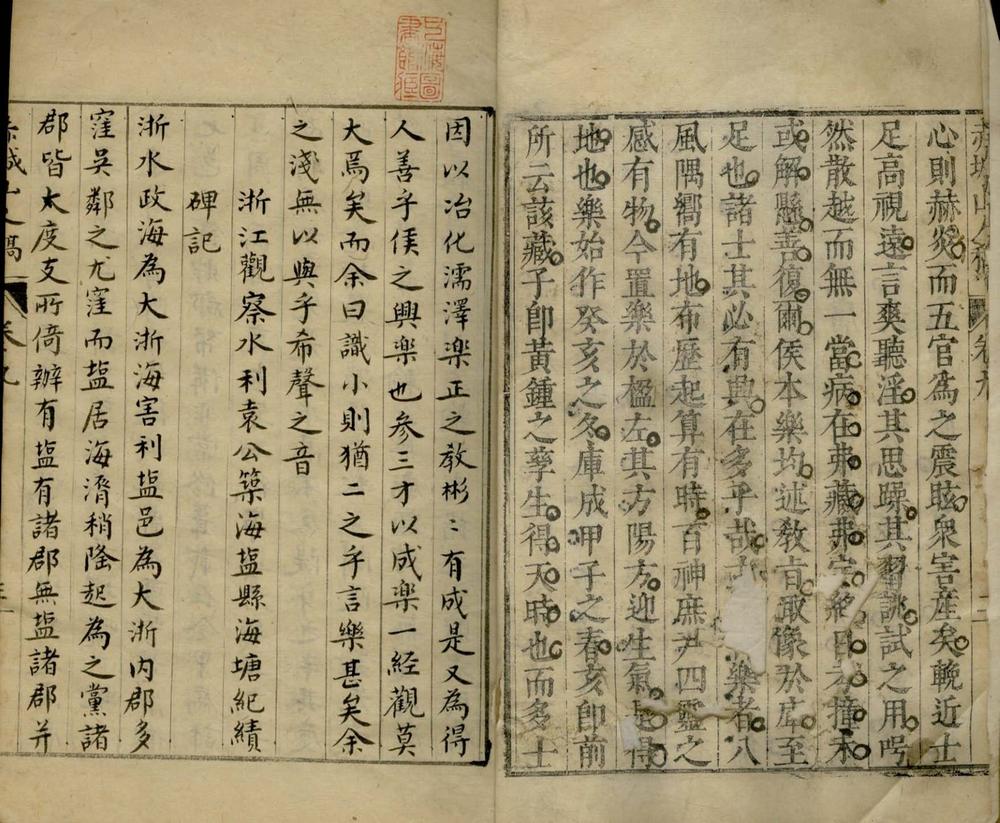 心則赫炎而五官為之震眩衆害產矣輓近士
足高視遠言爽聽淫其思躁其習誂試之用咢
然散越而無一當病在弗藏弗宗
或解懸善復爾侯本樂均述敎旨取像於㡳至
足也諸士其必有興在多乎哉
樂者八
風隅嚮有地布歷起算有時百神庶尹四靈之
感有物今置樂於楹左其方陽方迎生氣是得
地也樂始作癸亥之冬庫成甲子之春亥卽前
所云該藏子卽黃鍾之孳生得天時也而多士
因以冶化濡澤楽正之敎彬〻有成是又為得
人善乎侯之興楽也參三才以成楽一經觀莫
大焉矣而余曰識小則猶二之乎言樂甚矣余
之淺無以與乎希聲之音
浙江觀察水利袁公築海塩縣海塘紀績
碑記
浙水政海為大浙海害利塩邑為大浙内郡多
窪吳鄰之尤窪而塩居海濱稍隆起為之黨諸
郡皆太度支所倚辦有塩有諸郡無塩諸郡并